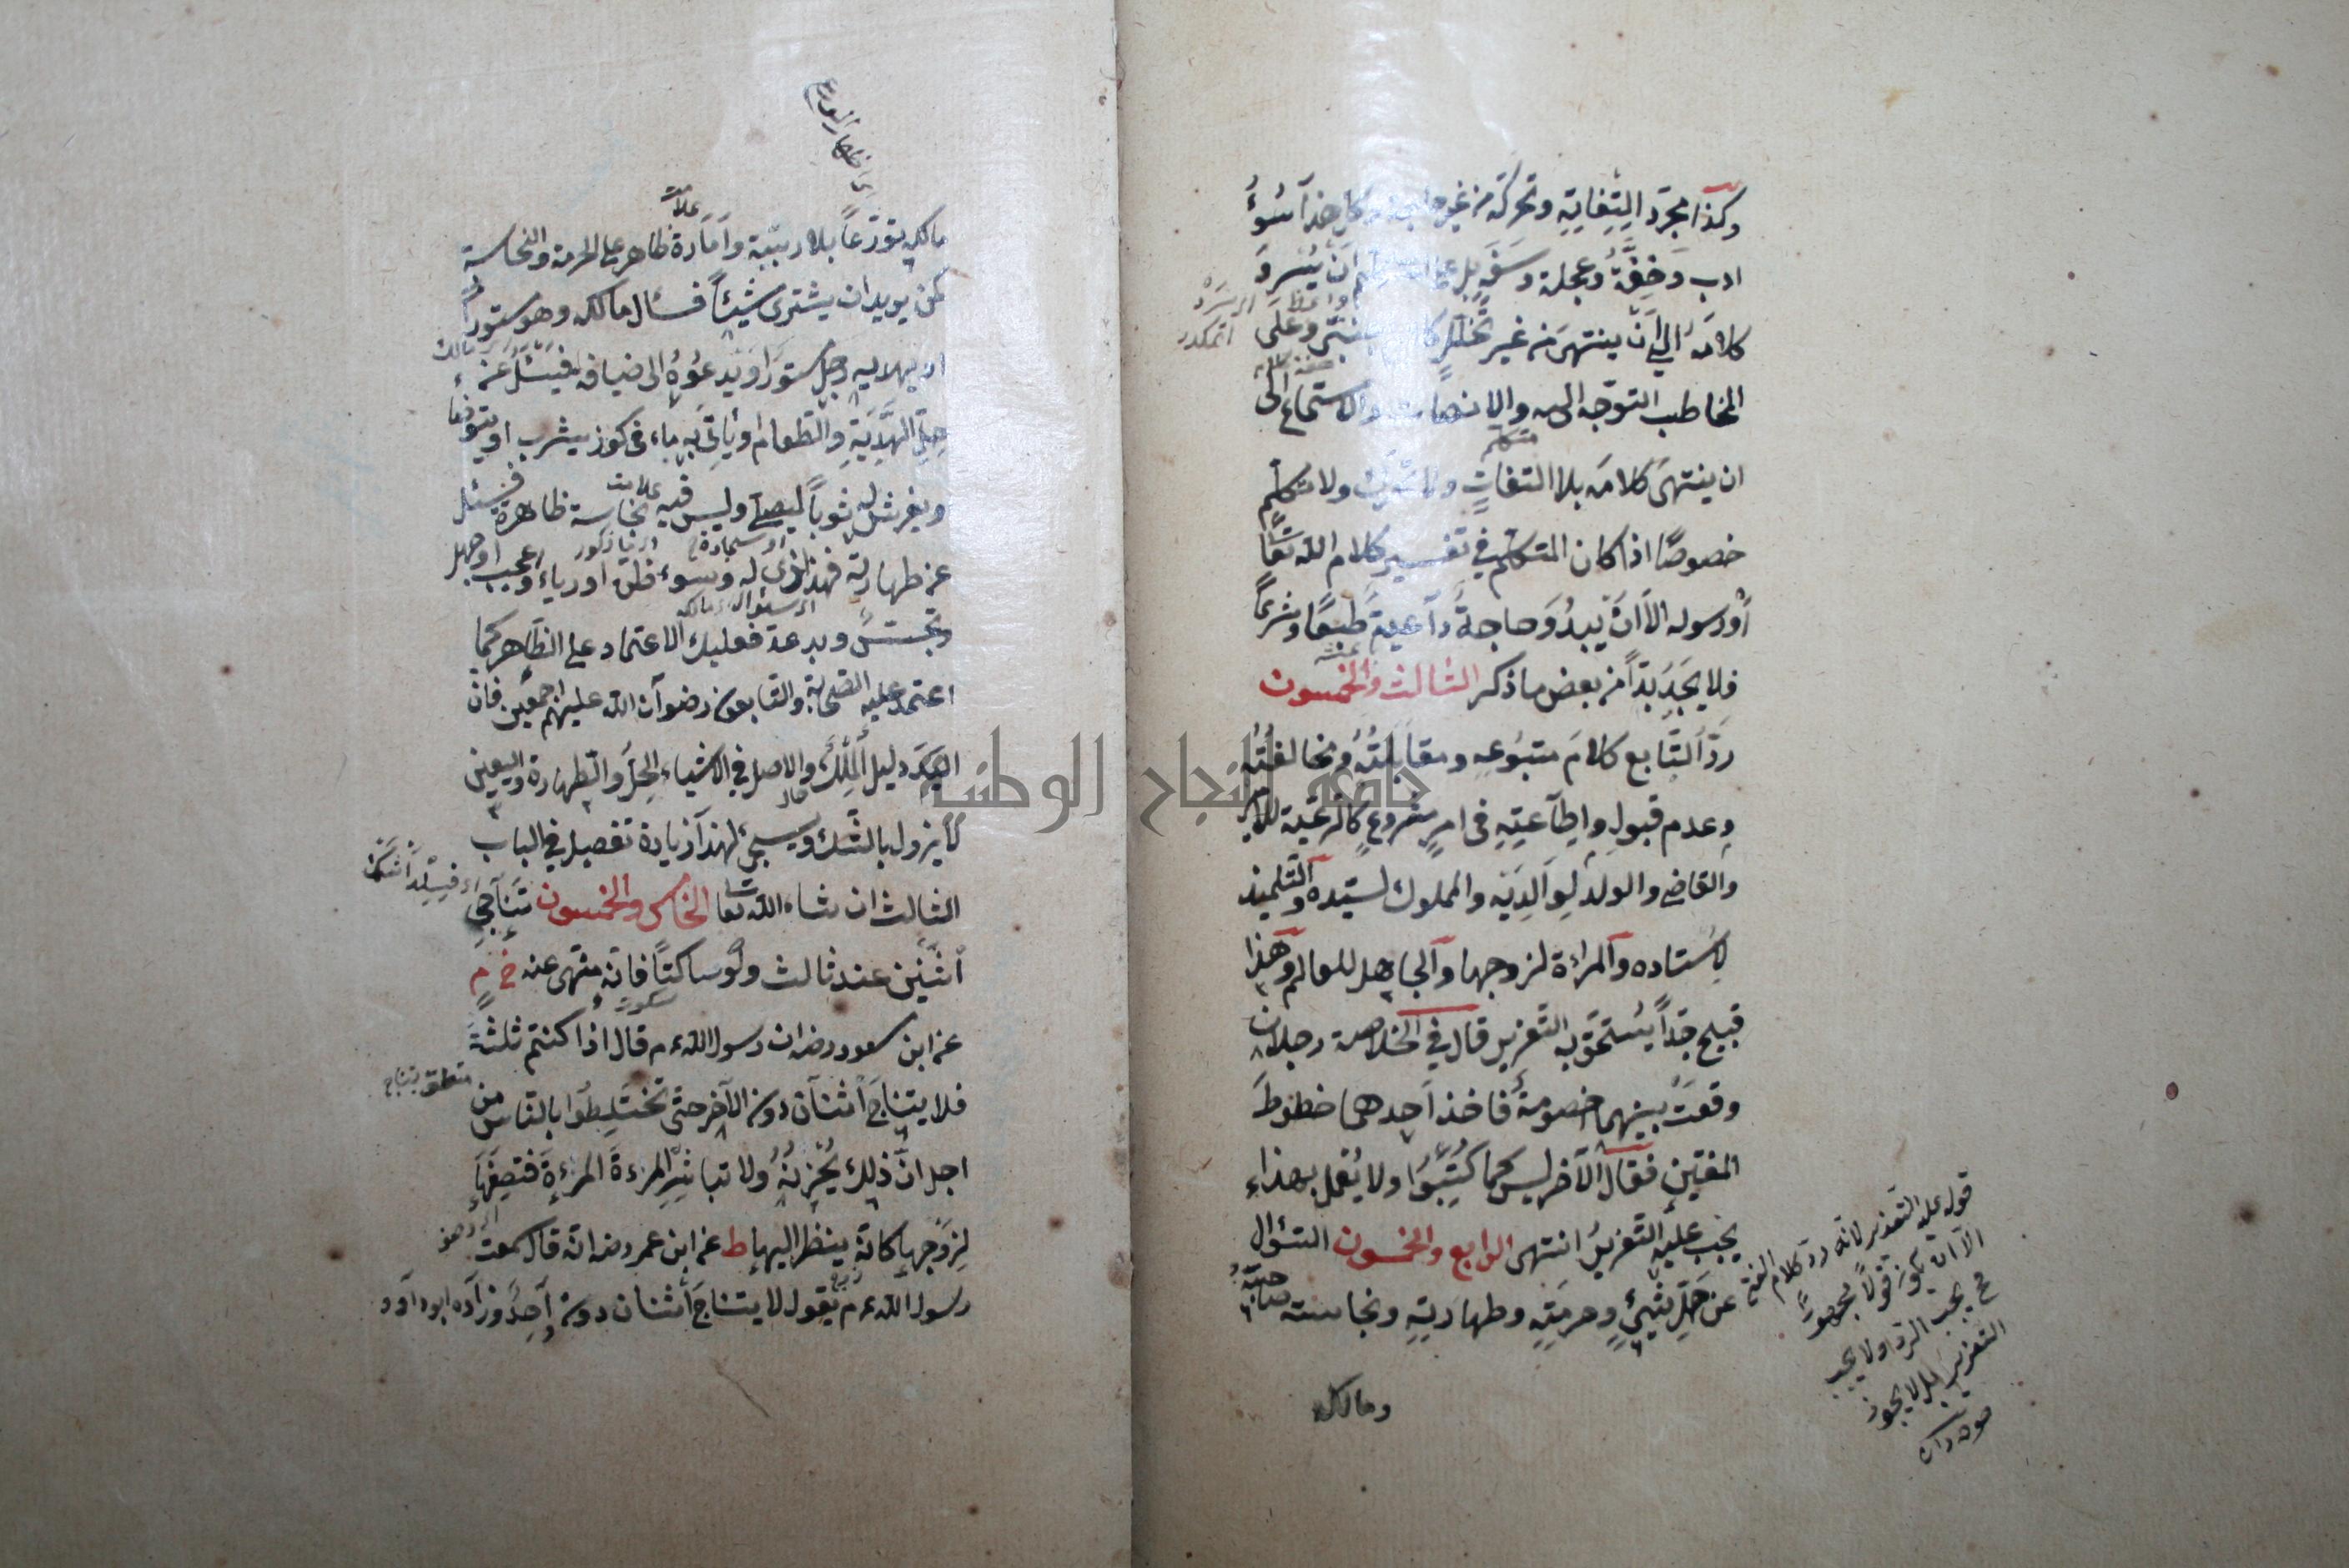 وكذا مجرد التفاته وتحركه من غير حاجة وكل هذا سوء
ادب وخفة وعجلة وسفه بل على المتكلم ان يسرد
كلامه الى ان ينتهى من غير تخلل كلام اجنبى وعلى
المخاطب التوجه اليه والانصات والاستماع الى
ان ينتهى كلامه بلا التفات ولا تحرك ولا تكلم
خصوصا اذا كان المتكلم فى تفسير كلام الله تعا
او رسوله الا ان يبدو حاجة داعية طبعا وشرعا
فلا يجد بدا من بعض ما ذكر الثالث والخمسون
رد التابع كلام متبوعه ومقابلته ومخالفته
وعدم قبول واطاعته فى امر مشروع كالرعية للامير
والقاضى والولد لوالديه والمملوك لسيده والتلميذ
لاستاده والمراءة لزوجها والجاهل للعالم وهذا
قبيح جدا يستحق به التعزير قال فى الخلاصة رجلان
وقعت بينهما خصومة فاخذ احدهما خطوط
المفتين فقال الآخر ليس كما كتبوا ولا يعمل بهذاء
يجب عليه التعزير انتهى الرابع والخمسون السؤال
عن حل شئ وحرمته وطهارته ونجاسته صاحبه
ومالكه
قوله عليه التعذير لانه رد كلام المفتى
الا ان يكون قولا مهجورا
يجب الرد ولا يجب
التعزير بل لا يجوز
اظهار الورع
علامت
مالكه تورعا بلا ريبة وامارة ظاهر على الحرمة والنجاسة
كمن يريد ان يشترى شيئا فسال مالكه وهو مستور
او يهدى اليه رجل مستور او يدعوه الى ضيافة فيسئل عن
حل الهدية والطعام او يأتى به ماء فى كوز ليشرب او يتوضا
ويفرش له ثوبا ليصلى وليس فيه علامت نجاسة ظاهرة فيسئل
عن طهارته فهذا اذى له وسوء ظن او رياء وعجب او جهل
وتجسس وبدعة فعليك الاعتماد على الظاهر كما
اعتمد عليه الصحابة والتابعون رضوان الله عليهم اجمعين فان
اليد دليل الملك والاصل فى الاشياء الحل والطهارة واليقين
لا يزول بالشك وسيجئ لهذا زيادة تفصيل فى الباب
الثالث ان شاء الله تعا الخامس والخمسون تناجى
اثنين عند ثالث ولو ساكتا فانه منهى عنه خ م
عن ابن مسعود رضه ان رسول الله عم قال اذا كنتم ثلثة
فلا يتناج اثنان دون الآخر حتى تختلطوا بالناس من
متعلق بتناج
اجل ان ذلك يحزنه ولا تباشر المرءة المرءة فتصفها
لزوجها كانه ينظر اليها ط عن ابن عمر رضه انه قال سمعت
رسول الله عم يقول لا يتناج اثنان دون واحد وزاده ابو داود